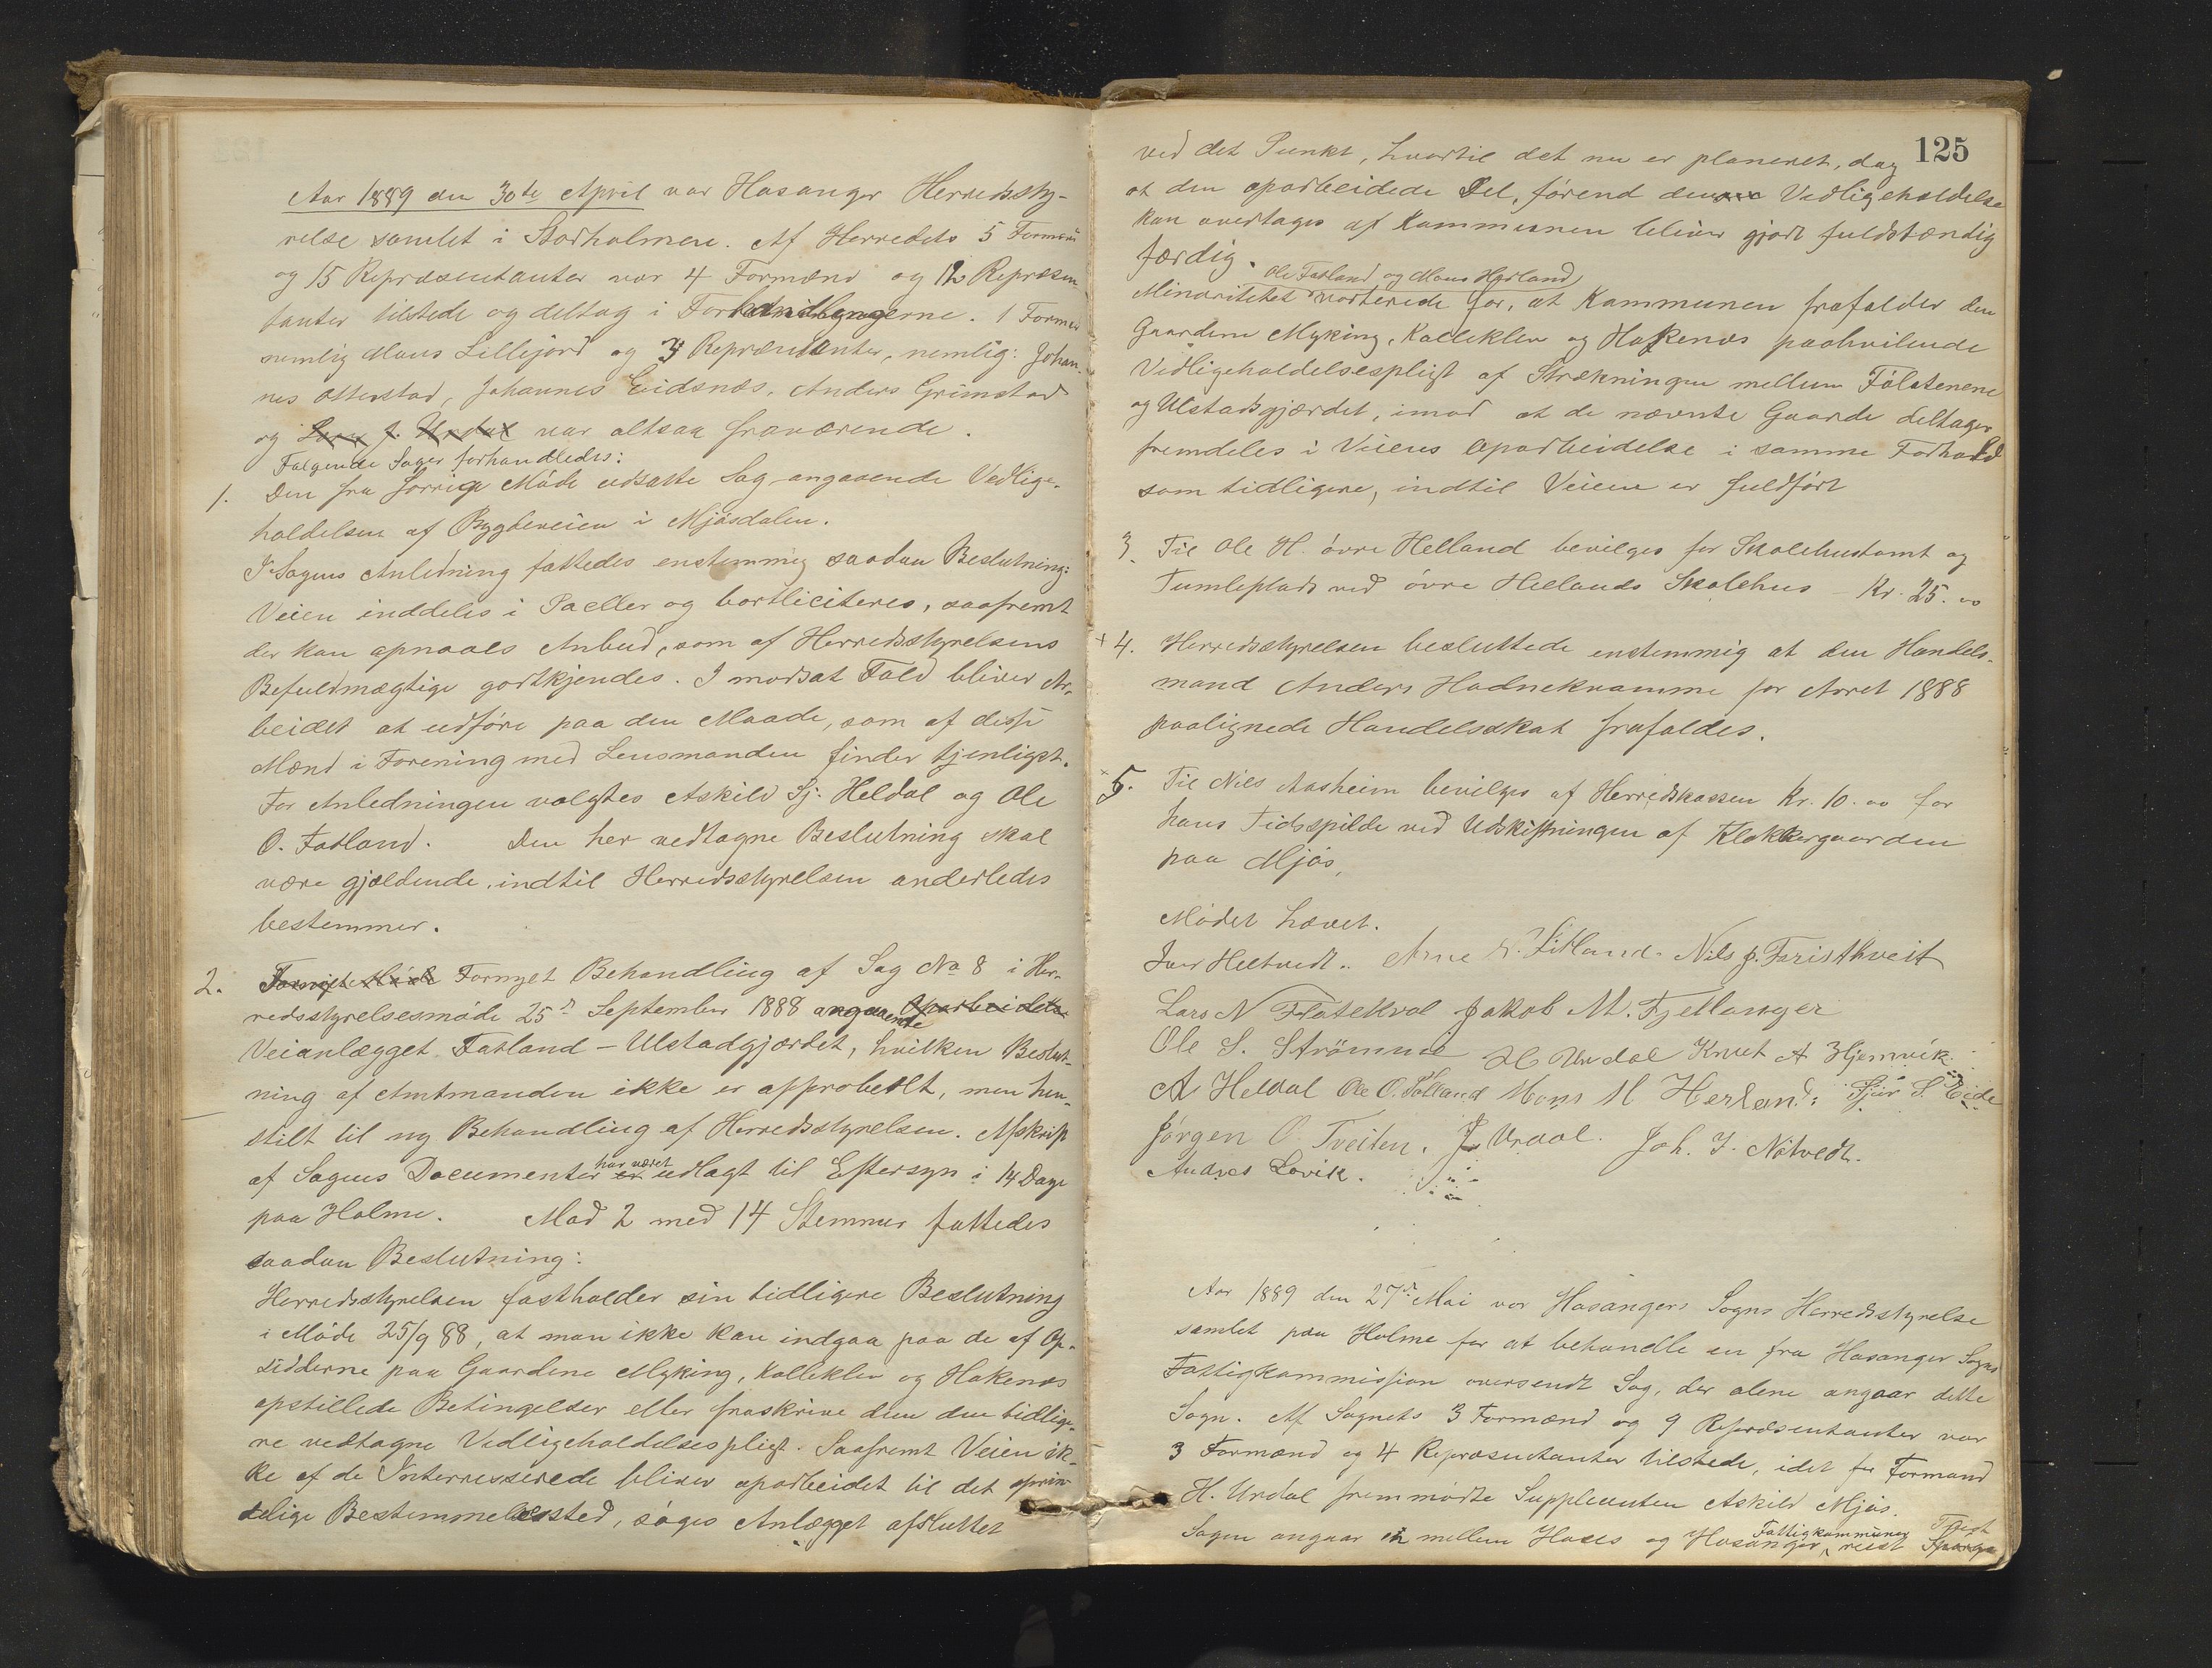 Aar 1889 den 30te April var Hosanger Herredssty-
relse samlet i Stadholmen. Af Herredets 5 Formænd
og 15 Repræsentanter var 4 Formænd og 12 Repræsen-
tanter tilstede og deltog i Forhandlingerne. 1 Formand
nemlig Mons Lillejord og 3 Repræsentanter, nemlig: Johan-
nes Otterstad, Johannes Eidsnæs, Anders Grimstad
og Lars J. Urdal var altsaa fraværende.
Følgende Sager forhandledes:
1. Den fra forrige Møde udsatte Sag angaaende Vedlige-
holdelsen af Bygdeveien i Mjøsdalen.
I Sagens Anledning fattedes enstemmig saadan Beslutning:
Veien inddeles i Paeller og bortliciteres, saafremt
der kan opnaaes Anbud, som af Herredsstyrelsens
Befuldmægtige godtkjendes. I modsat Fald bliver Ar-
beidet at udføre paa den Maade, som af disse
Mænd i Forening med Lensmanden finder tjenligst.
For Anledningen valgtes Askild Sj. Heldal og Ole
O. Fatland. Den her vedtagne Beslutning skal
være gjældende, indtil Herredsstyrelsen anderledes
bestemmer.
2. Fornyet Behandling af Sag No 8 i Her-
redsstyrelsesmøde 25de September 1888 angaaende Oparbeidelse
Veianlægget Fatland - Ulstadgjærdet, hvilken Beslut-
ning af Amtmanden ikke er approbert, men hen-
stilt til ny Behandling af Herredsstyrelsen. Afskrift
af Sagens Documenter er har været udlagt til Eftersyn i 14 Dage
paa Holme. Mod 2 med 14 Stemmer fattedes
saadan Beslutning:
Herredsstyrelsen fastholder sin tidligere Beslutning
i Møde 25/9 88, at man ikke kan indgaa paa de af Op-
sidderne paa Gaardene Myking, Kalleklev og Hakenæs
opstillede Betingelser eller fraskrive dem den tidlige-
re vedtagne Vedligeholdelsespligt. Saafremt Veien ik-
ke af de Interresserede bliver oparbeidet til det oprin-
delige Bestemmelsessted, søges Anlægget afsluttet
125
ved det Punkt, hvortil det nu er planeret, dog
at den oparbeidede Del, førend dens Vedligeholdelse
kan overtages af Kommunen bliver gjort fuldstændig
færdig.
Ole Fatland og Mons Herland
Minoritetet voterede for, at Kommunen frafalder den
Gaardene Myking, Kalleklev og Hakenæs paahvilende
Vedligeholdelsespligt af Strækningen mellem Fölstenene
og Ulstadgjærdet, imod at de nævnte Gaarde deltager
fremdeles i Veiens Oparbeidelse i samme Forhold
som tidligere, indtil Veien er fuldført
3. Til Ole H. øvre Helland bevilges for Skolehustomt og
Tumleplads ved øvre Hellands Skolehus - Kr. 25.00
+ 4. Herredsstyrelsen besluttede enstemmig at den Handels-
mand Anders Hodnekvamme for Aaret 1888
paalignede Handelsskat frafaldes.
+ 5. Til Nils Aasheim bevilges af Herredskassen Kr. 10.00 for
hans Tidsspilde ved Udskiftningen af Klokkergaarden
paa Mjøs.
Mødet hævet.
Iver Heltvedt. Arne N. Litland. Nils J. Faristhveit
Lars N Flatekval Jakob M. Fjellanger
Ole S. Strömme H Urdal Knut A Hjemvik
A Heldal Ole O. Fatland Mons M Herland. Sjur S. Eide
Jørgen O. Tveiten. J. Urdal. Joh. J. Nötvedt.
Andres Lövik.
Aar 1889 den 27de Mai var Hosangers Sogns Herredsstyrelse
samlet paa Holme for at behandle en fra Hosanger Sogns
Fattigkommission oversendt Sag, der alene angaar dette
Sogn. Af Sognets 3 Formænd og 9 Repræsentanter var
3 Formænd og 4 Repræsentanter tilstede, idet for Formand
H. Urdal fremmødte Suppleanten Askild Mjøs.
Sagen angaar en mellem Hauss og Hosanger Fattigkommuner reist Tvist